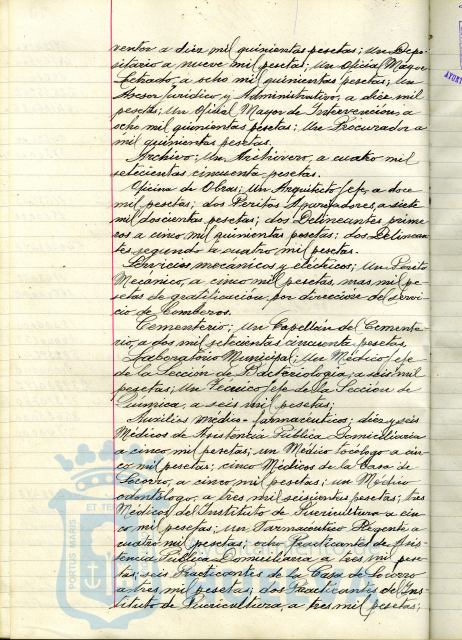 ventor a diez mil quinientas pesetas; un Depo-
sitario a nueve mil pesetas; un Oficial Mayor
Letrado, a ocho mil quinientas pesetas; un
Asesor Jurídico y Administrativo, a diez mil
pesetas; un Oficial Mayor de Intervención, a
ocho mil quinientas pesetas; un Procurador a
mil quinientas pesetas.
Archivo: un Archivero, a cuatro mil
setecientas cincuenta pesetas.
Oficina de Obras; un Arquitecto Jefe, a doce
mil pesetas; dos Peritos Aparejadores, a siete
mil doscientas pesetas; dos Delineantes prime
ros a cinco mil quinientas pesetas; dos Delinean
tes segundos a cuatro mil pesetas.
Servicios mecánicos y eléctricos; un Perito
Mecánico, a cinco mil pesetas, mas mil pe-
setas de gratificación por dirección del servi-
cio de Bomberos.
Cementerio; un Capellán del Cemente-
rio, a dos mil setecientas cincuenta pesetas.
Laboratorio Municipal; un Médico Jefe
de la Sección de Bacteriología, a seis mil
pesetas; un Técnico Jefe de la Sección de
Química, a seis mil pesetas;
Auxilios médico-farmacéuticos; diez y seis
Médicos de Asistencia Pública Domiciliaria
a cinco mil pesetas; un Médico Tocólogo a cin-
co mil pesetas; cinco Médicos de la Casa de
Socorro, a cinco mil pesetas; un Médico
odontólogo, a tres mil seiscientas pesetas; tres
Médicos del Instituto de Puericultura a cin-
co mil pesetas; un Farmacéutico Regente a
cuatro mil pesetas; ocho Practicantes de Asis-
tencia Pública Domiciliaria a tres mil pese
tas; seis Practicantes de la Casa de Socorro
a tres mil pesetas; dos Practicantes del Ins-
tituto de Puericultura, a tres mil pesetas;
PORTUS MARIS
ET TE